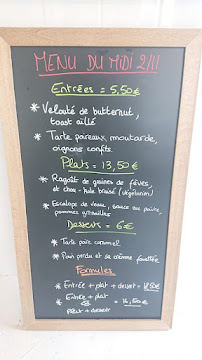 MENU DU MIDI 2/11
Entrées = 5,50€
* Velouté de butternut,
toast aillé
* Tarte poireaux, moutarde,
oignons confits.
Plats = 13,50€
* Ragoût de graines de fèves,
et chou-kale braisé (végétarien)
* Escalope de veau, sauce au poivre,
pommes grenailles
Desserts = 6€
* Tarte poire caramel
* Pain perdu et sa crème fouettée
Formules
* Entrée + plat + dessert =
* Entrée + plat
= 16,50€
Plat + dessert